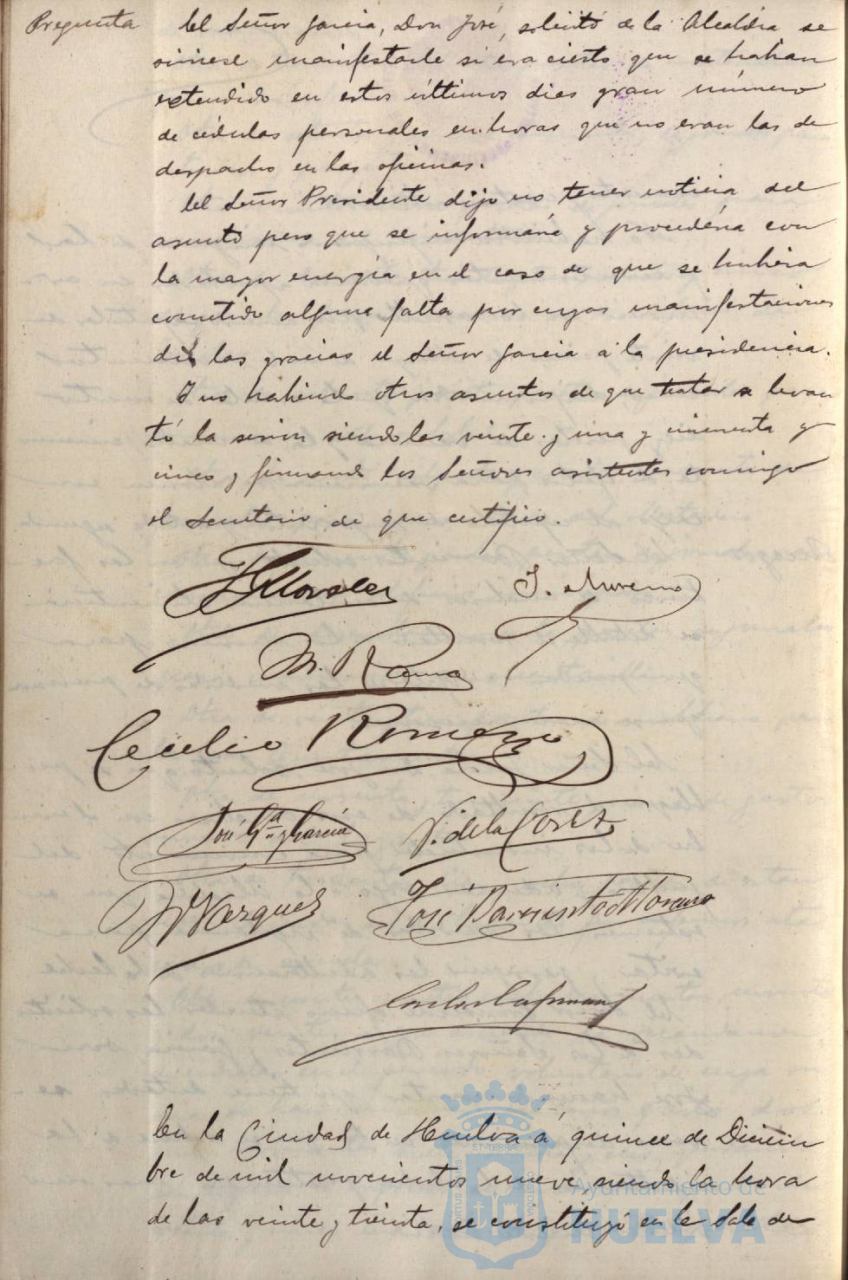 Pregunta
El Señor Garcia, Don José, solicitó de la Alcaldia se
sirviese manifestarle si era cierto que se habian
extendido en estos últimos dias gran número
de cédulas personales en horas que no eran las de
despacho en las oficinas.
El Señor Presidente dijo no tener noticia del
asunto pero que se informaria y procederia con
la mayor energia en el caso de que se hubiera
cometido alguna falta por cuyas manifestaciones
dió las gracias el Señor Garcia á la presidencia.
Y no habiendo otros asuntos de que tratar se levan
tó la sesion siendo las veinte y una y cincuenta y
cinco y firmando los Señores asistentes conmigo
el Secretario de que certifico.
J. Moreno
M. Rama
Cecilio Romero
José Gª y García
V. de la Corte
Vazquez
José Barrientos Moreno
En la Ciudad de Huelva á quince de Diciem
bre de mil novecientos nueve, siendo la hora
de las veinte y treinta, se constituyó en la Sala de
Ayuntamiento de
HUELVA